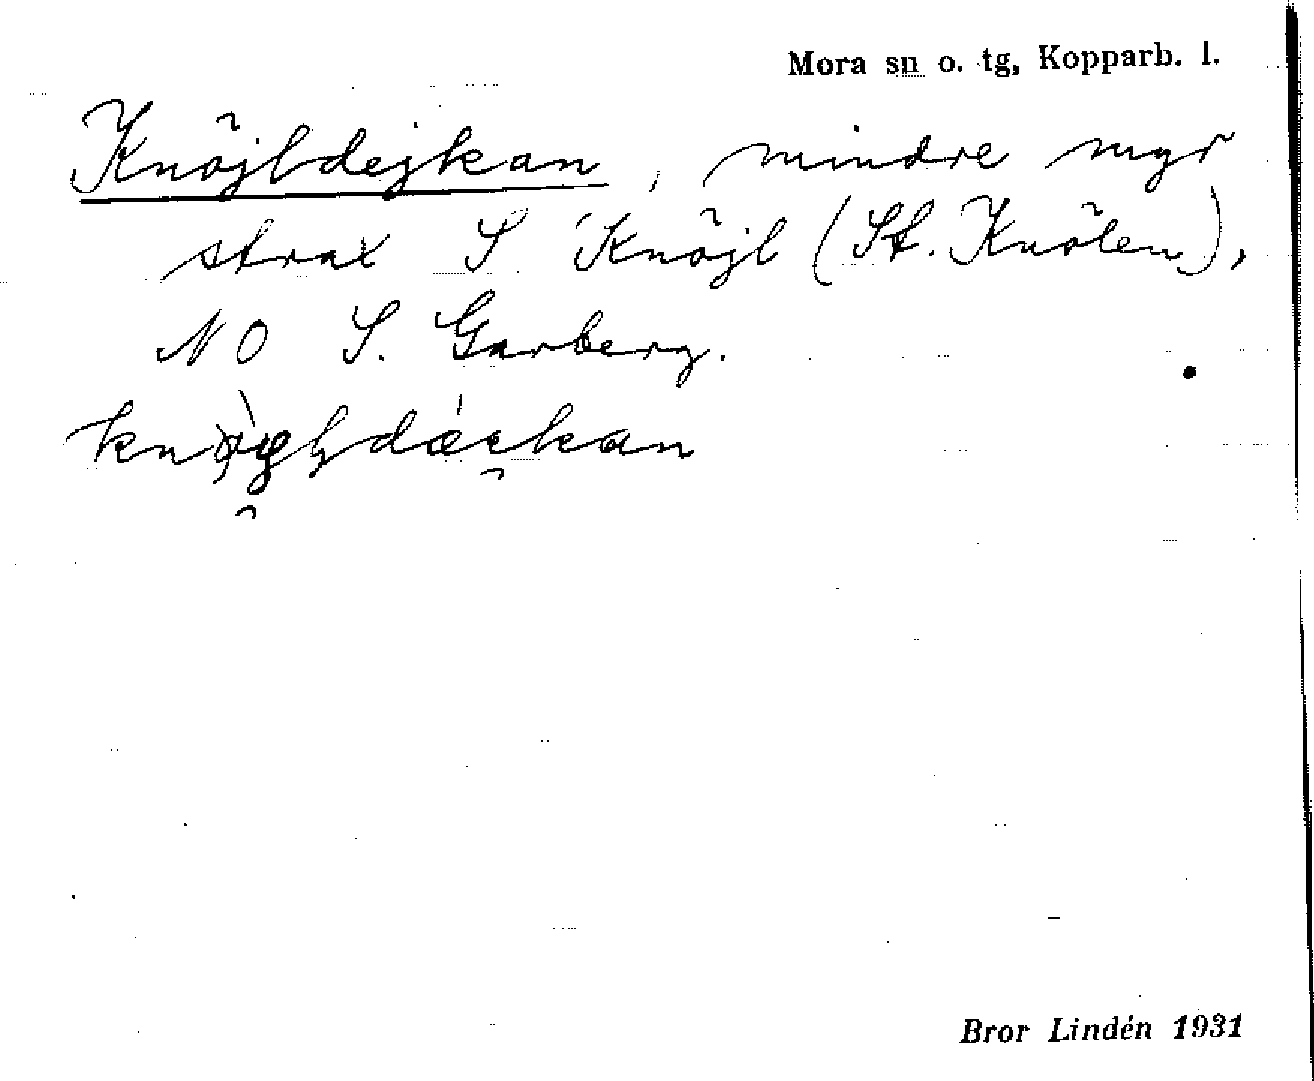 Mora sn o. tg, Kopparb. l.
Knöjldejkan, mindre myr
strax S Knöjl (St. Knölen),
NO S. Garberg.
Bror Lindén 1931